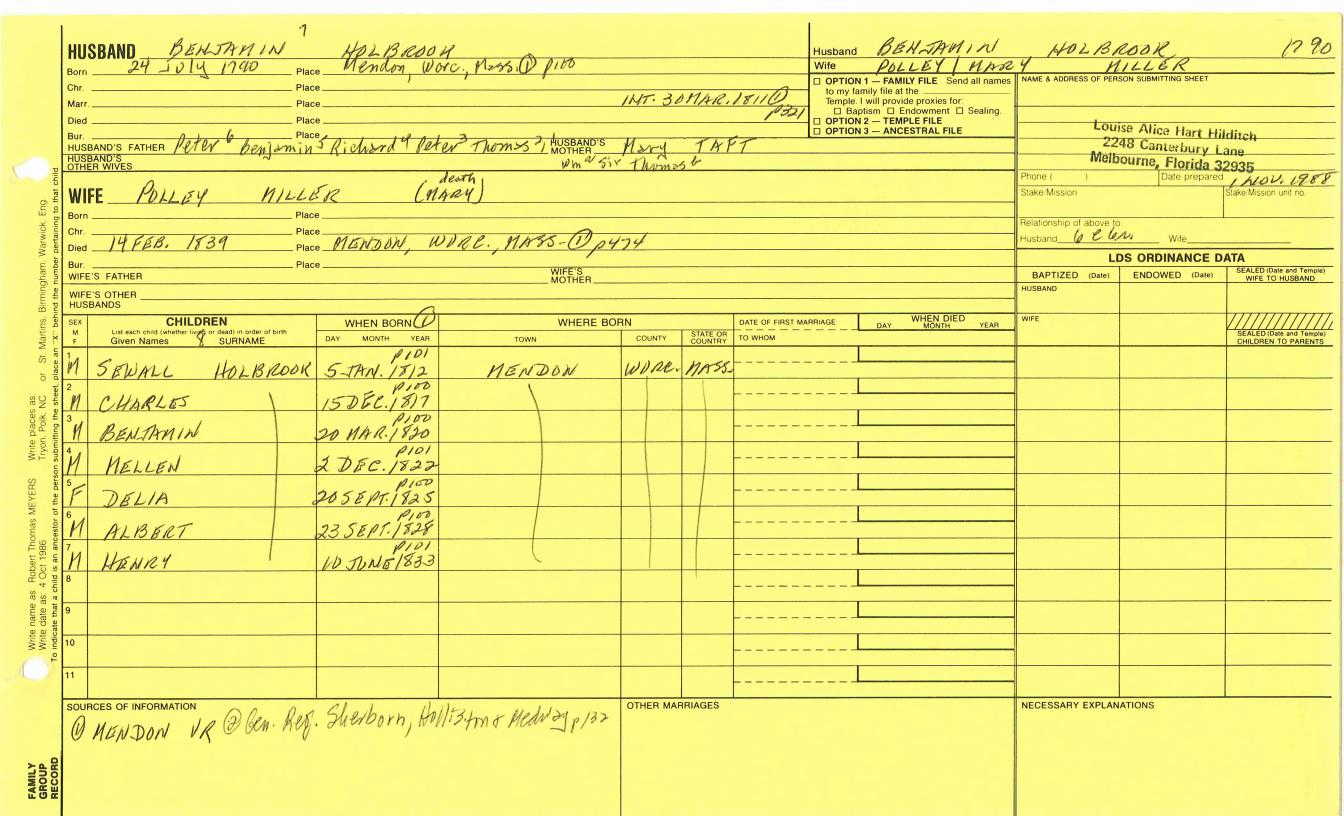 7
HUSBAND BENJAMIN HOLBROOK
Born 24 July 1790 Place Mendon, Worc., Mass. ① p100
Chr. Place
Marr. Place INT. 30 MAR. 1811 ① p321
Died Place
Bur. Place
HUSBAND'S FATHER Peter 6 Benjamin 5 Richard 4 Peter 3 Thomas 2, 1 HUSBAND'S MOTHER Mary TAFT
HUSBAND'S OTHER WIVES Sir Thomas
Husband BENJAMIN HOLBROOK 1790
Wife POLLEY / MARY MILLER
☐ OPTION 1 — FAMILY FILE Send all names
to my family file at the
Temple. I will provide proxies for:
☐ Baptism ☐ Endowment ☐ Sealing.
☐ OPTION 2 — TEMPLE FILE
☐ OPTION 3 — ANCESTRAL FILE
NAME & ADDRESS OF PERSON SUBMITTING SHEET
Louise Alice Hart Hilditch
2248 Canterbury Lane
Melbourne, Florida 32935
Phone ( ) Date prepared 1 NOV. 1988
Stake/Mission Stake/Mission unit no.
Relationship of above to:
Husband Wife
death
WIFE POLLEY MILLER (MARY)
Born Place
Chr. Place
Died 14 FEB. 1839 Place MENDON, WORC., MASS- ① p474
Bur. Place
WIFE'S FATHER WIFE'S MOTHER
WIFE'S OTHER HUSBANDS
LDS ORDINANCE DATA
BAPTIZED (Date) ENDOWED (Date) SEALED (Date and Temple) WIFE TO HUSBAND
HUSBAND
WIFE
SEALED (Date and Temple) CHILDREN TO PARENTS
SEX M F CHILDREN WHEN BORN ① WHERE BORN DATE OF FIRST MARRIAGE WHEN DIED
List each child (whether living or dead) in order of birth
Given Names 8 SURNAME DAY MONTH YEAR TOWN COUNTY STATE OR COUNTRY TO WHOM DAY MONTH YEAR
p101
1 M SEWALL HOLBROOK 5 JAN. 1812 MENDON WORC. MASS.
p100
2 M CHARLES 15 DEC. 1817
p100
3 M BENJAMIN 20 MAR. 1820
p101
4 M MELLEN 2 DEC. 1822
p100
5 F DELIA 20 SEPT. 1825
p100
6 M ALBERT 23 SEPT. 1828
p101
7 M HENRY 10 JUNE 1833
8
9
10
11
SOURCES OF INFORMATION OTHER MARRIAGES NECESSARY EXPLANATIONS
① MENDON VR ② Gen. Reg. Sherborn, Holliston & Medway p132
Write name as: Robert Thomas MEYERS Write places as: Tryon, Polk, NC or St. Martins, Birmingham, Warwick, Eng.
Write date as: 4 Oct 1986
To indicate that a child is an ancestor of the person submitting the sheet, place an "X" behind the number pertaining to that child
FAMILY GROUP RECORD